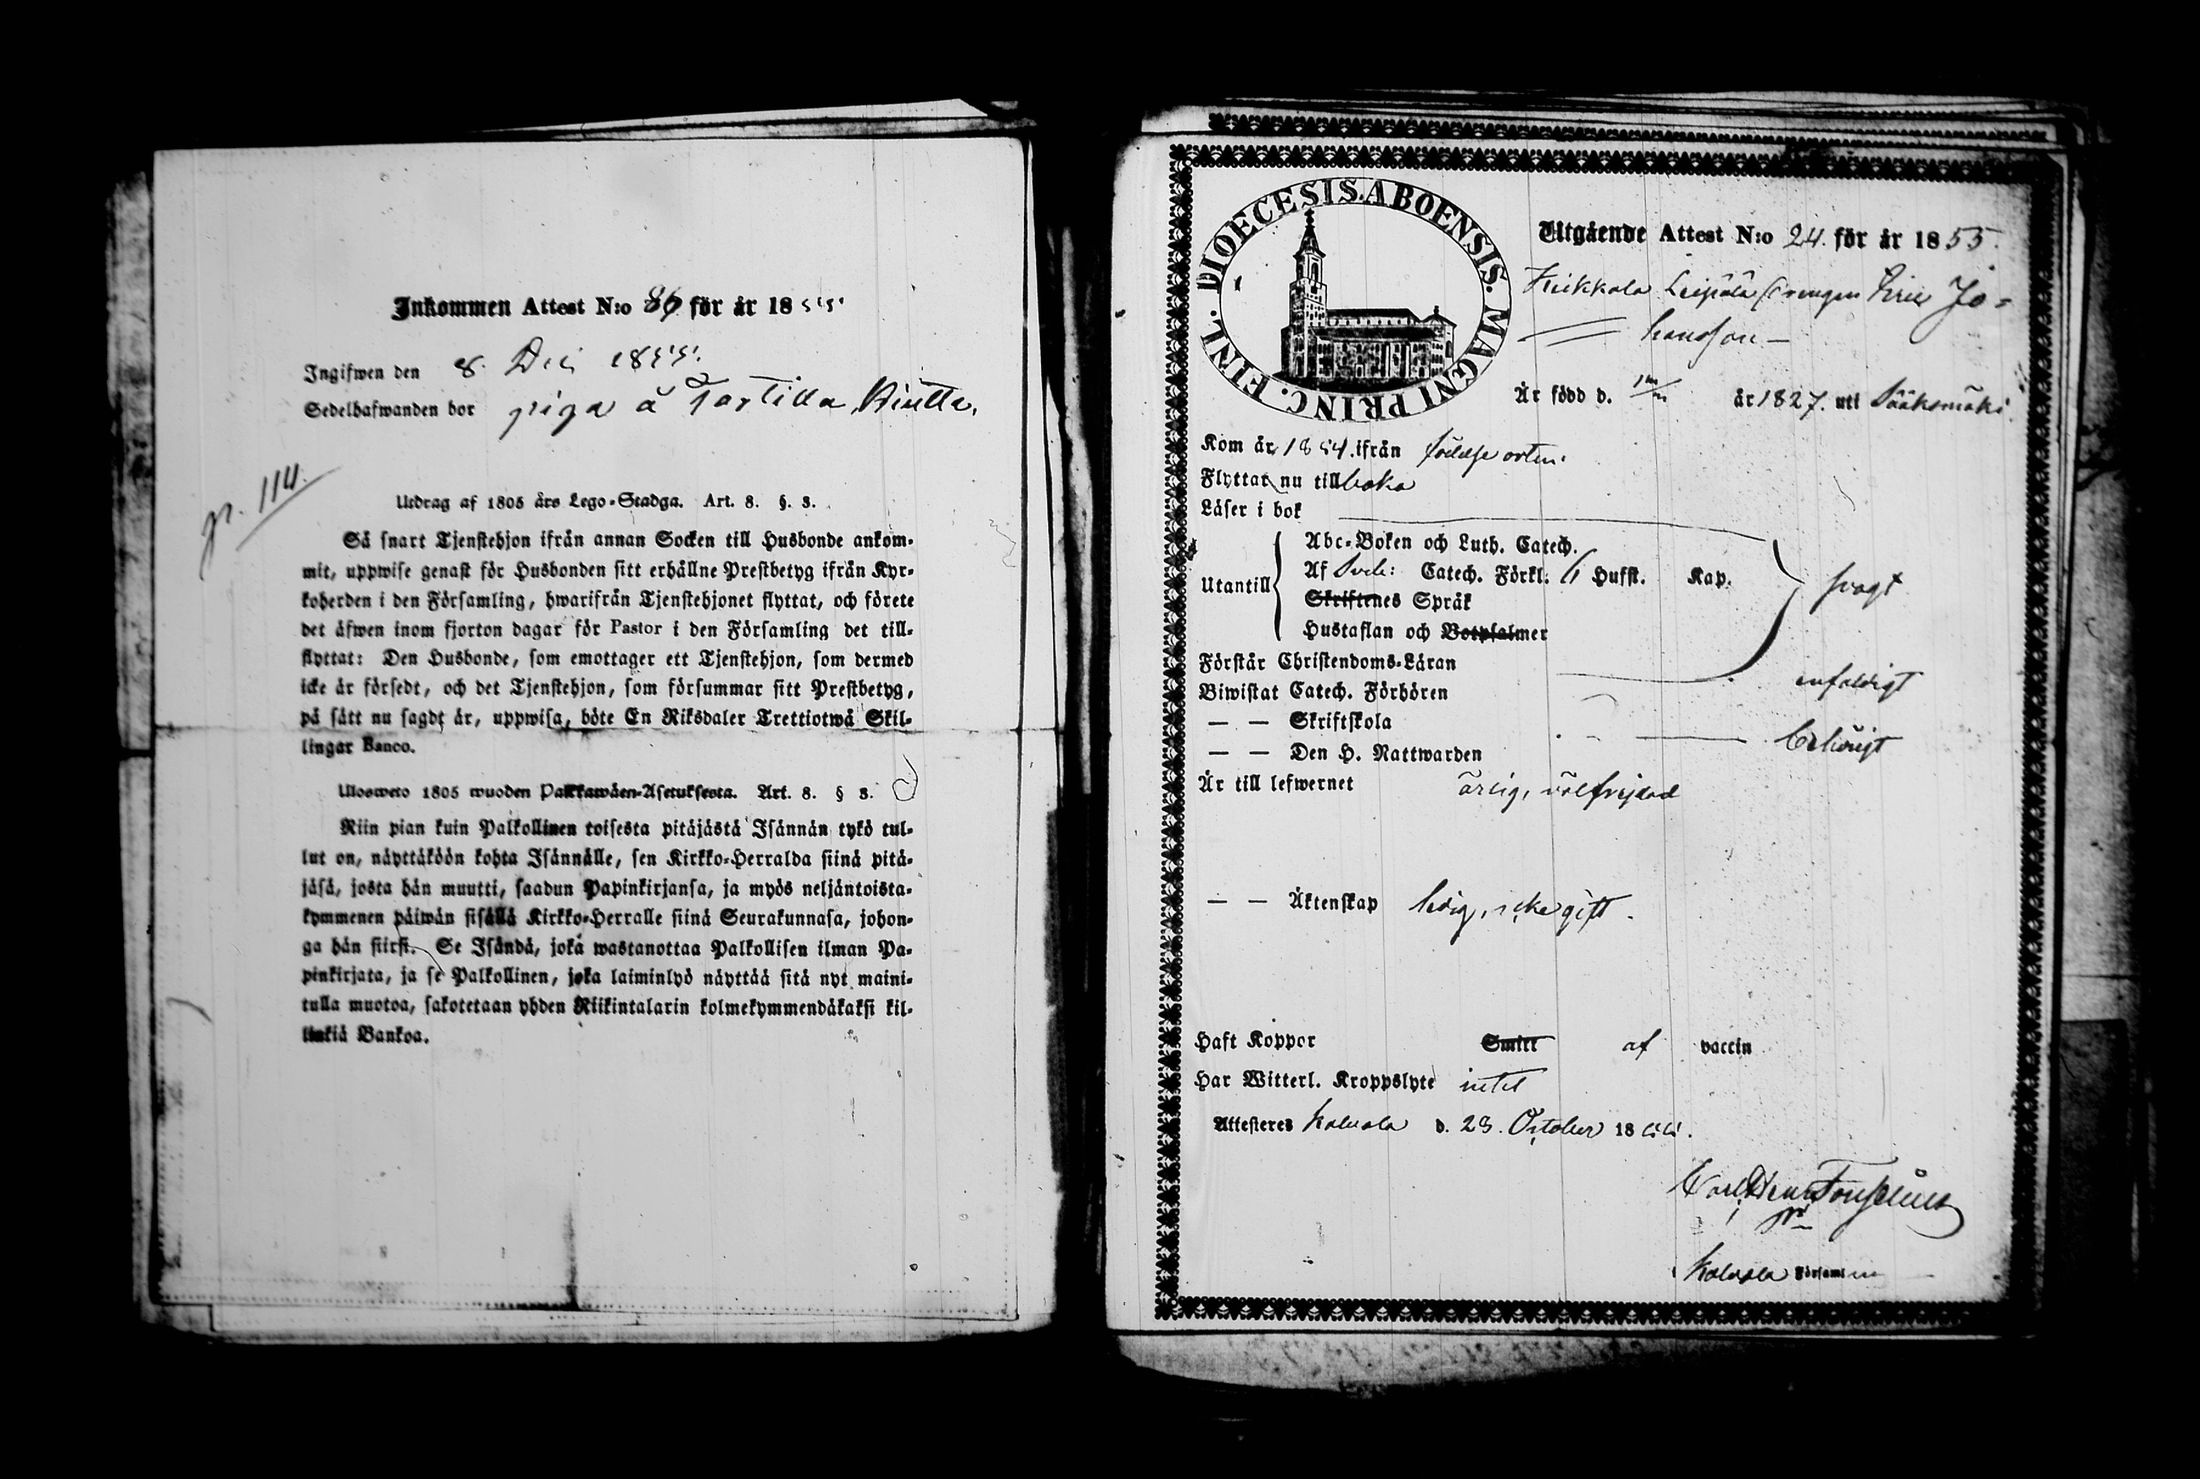 Inkommen Attest N:o 86 för år 1855
Ingifwen den 8. Dec 1855.
Sedelhafwanden bor piga å Tartila
p. 114.
Utdrag af 1805 års Lego-Stadga. Art. 8. §. 3.
Så snart Tjenstehjon ifrån annan Socken till Husbonde ankom-
mit, uppwise genast för Husbonden sitt erhållne Prestbetyg ifrån Kyr-
koherden i den Församling, hwarifrån Tjenstehjonet flyttat, och förete
det äfwen inom fjorton dagar för Pastor i den Församling det till-
flyttat: Den Husbonde, som emottager ett Tjenstehjon, som dermed
icke är försedt, och det Tjenstehjon, som försummar sitt Prestbetyg,
på sätt nu sagdt är, uppwisa, böte En Riksdaler Trettiotwå Skil-
lingar Banco.
Ulosweto 1805 wuoden Palkkawäen-Asetuksesta. Art. 8. § 3.
Niin pian kuin Palkollinen toisesta pitäjästä Isännän tykö tul-
lut on, näyttäköön kohta Isännälle, sen Kirkko-Herralda siinä pitä-
jäsä, josta hän muutti, saadun Papinkirjansa, ja myös neljäntoista-
kymmenen päiwän sisällä Kirkko-Herralle siinä Seurakunnasa, johon-
ga hän siirsi. Se Isändä, joka wastanottaa Palkollisen ilman Pa-
pinkirjata, ja se Palkollinen, joka laiminlyö näyttää sitä nyt maini-
tulla muotoa, sakotetaan yhden Riikintalarin kolmekymmendäkaksi kil-
linkiä Bankoa.
DIOECESIS. ABOENSIS. MAGNI PRINC. FINL.
Utgående Attest N:o 24. för år 1855.
Heikkola Leipälä Drengen Eric Jo-
hansson
Är född d. år 1827. uti Sääksmäki
Kom år 1854. ifrån födelse orten.
Flyttar nu tillbaka
Läser i bok
Utantill
Abc-Boken och Luth. Catech.
Af Sveb: Catech. Förkl. 6 Hufst. Kap.
Skriftenes Språk
Hustaflan och Botpsalmer
svagt
Förstår Christendoms-Läran enfaldigt
Biwistat Catech. Förhören
— — Skriftskola
— — Den H. Nattwarden behörigt
Är till lefwernet ärlig, välfrejdad
— — Äktenskap ledig, icke gift.
Haft Koppor Smitt af vaccin
Har Witterl. Kroppslyte intet
Attesteres Kalvola d. 23. October 1855.
Carl Henr
Kalvola Församl